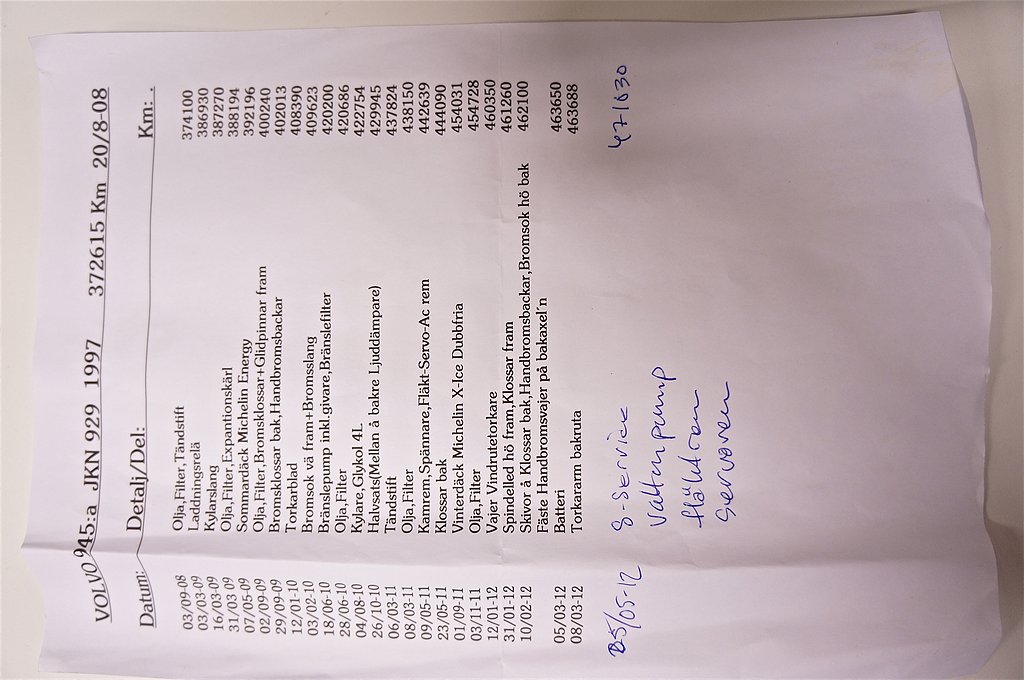 VOLVO 945:a JKN 929 1997 372615 Km 20/8-08
Datum: Detalj/Del: Km: .
03/09-08 Olja,Filter,Tändstift 374100
03/03-09 Laddningsrelä 386930
16/03-09 Kylarslang 387270
31/03 09 Olja,Filter,Expantionskärl 388194
07/05-09 Sommardäck Michelin Energy 392196
02/09-09 Olja,Filter,Bromsklossar+Glidpinnar fram 400240
29/09-09 Bromsklossar bak,Handbromsbackar 402013
12/01-10 Torkarblad 408390
03/02-10 Bromsok vä fram+Bromsslang 409623
18/06-10 Bränslepump inkl.givare,Bränslefilter 420200
28/06-10 Olja,Filter 420686
04/08-10 Kylare,Glykol 4L 422754
26/10-10 Halvsats(Mellan å bakre Ljuddämpare) 429945
06/03-11 Tändstift 437824
08/03-11 Olja,Filter 438150
09/05-11 Kamrem,Spännare,Fläkt-Servo-Ac rem 442639
23/05-11 Klossar bak 444090
01/09-11 Vinterdäck Michelin X-Ice Dubbfria 454031
03/11-11 Olja,Filter 454728
12/01-12 Vajer Vindrutetorkare 460350
31/01-12 Spindelled hö fram,Klossar fram 461260
10/02-12 Skivor å Klossar bak,Handbromsbackar,Bromsok hö bak 462100
Fäste Handbromsvajer på bakaxel'n
05/03-12 Batteri 463650
08/03-12 Torkararm bakruta 463688
25/05-12 S-Service 471030
Vattenpump
fläktrem
servorem